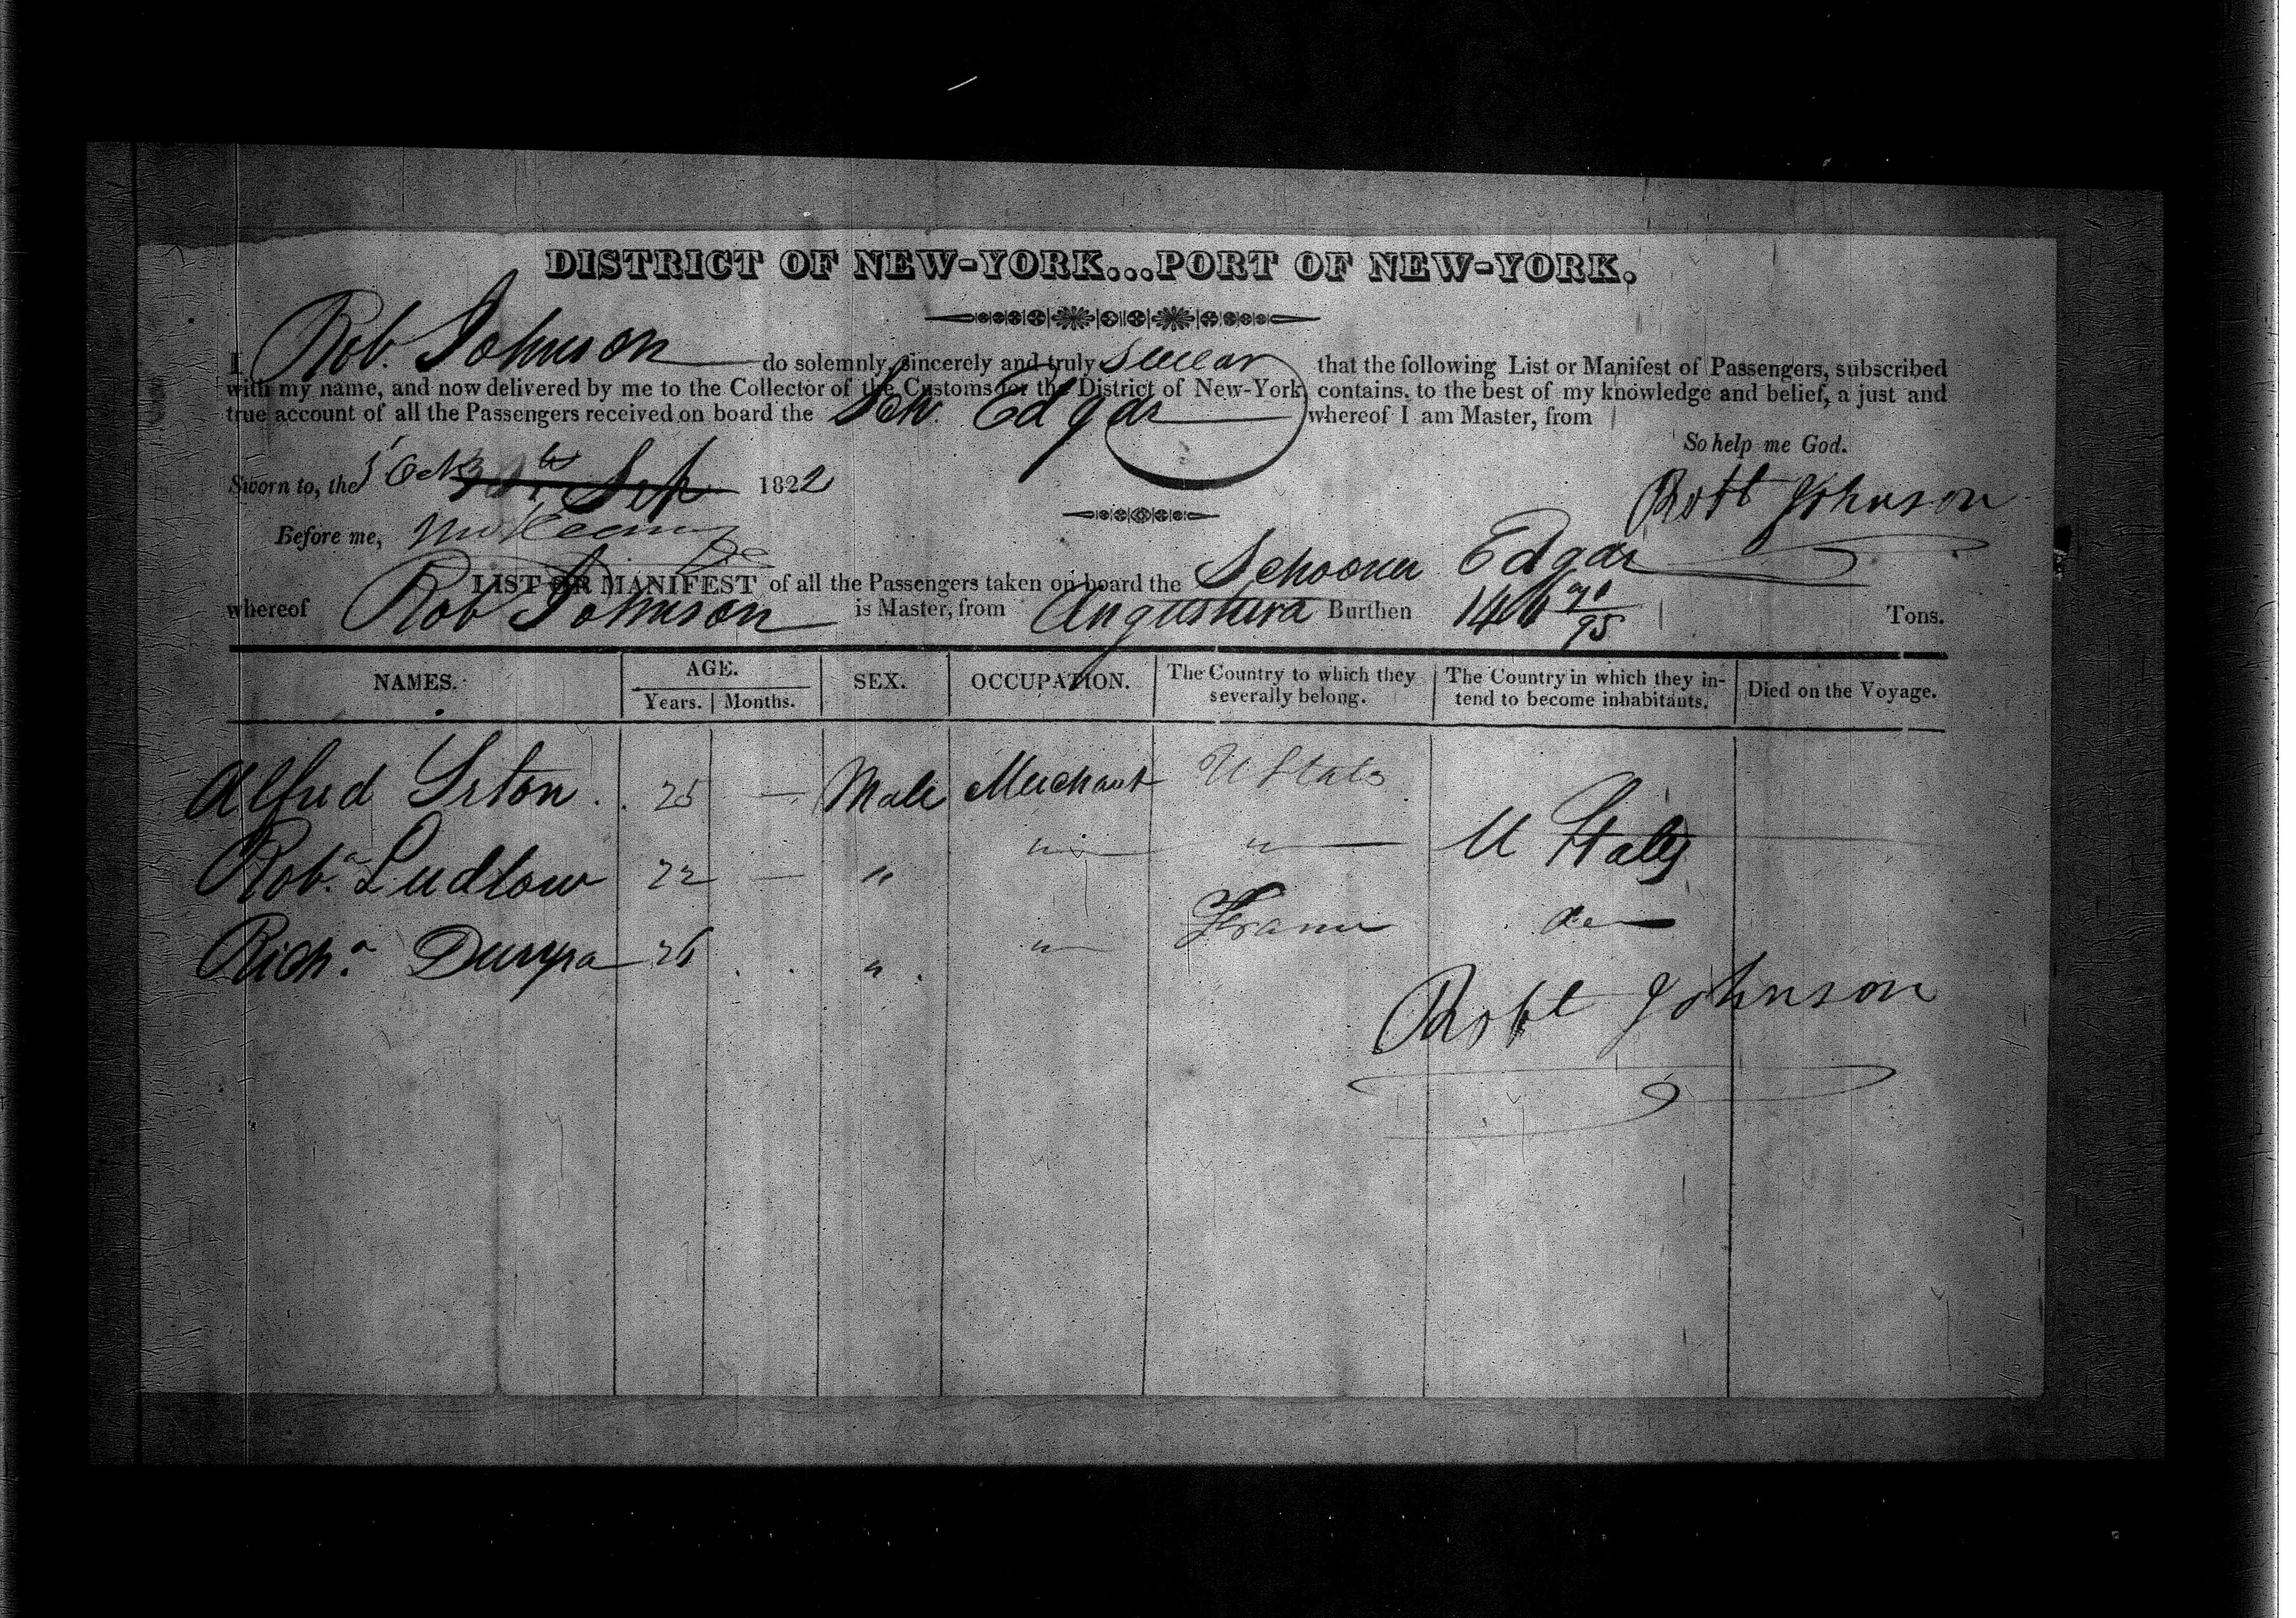 DISTRICT OF NEW-YORK...PORT OF NEW-YORK.
I Rob. Johnson do solemnly, sincerely and truly swear that the following List or Manifest of Passengers, subscribed
with my name, and now delivered by me to the Collector of the Customs for the District of New-York, contains, to the best of my knowledge and belief, a just and
true account of all the Passengers received on board the Sch. Edgar whereof I am Master, from
So help me God.
Sworn to, the 1 Oct 30th Sep 1822
Robt Johnson
Before me,
LIST OR MANIFEST of all the Passengers taken on board the Schooner Edgar
whereof Rob Johnson is Master, from Angustura Burthen 146 71/95 Tons.
NAMES. AGE. Years. Months. SEX. OCCUPATION. The Country to which they severally belong. The Country in which they intend to become inhabitants. Died on the Voyage.
Alfred 25 — Male Merchant U States
Rob. Ludlow 22 — " " " U States
Rich. 26 " " France do
Robt Johnson